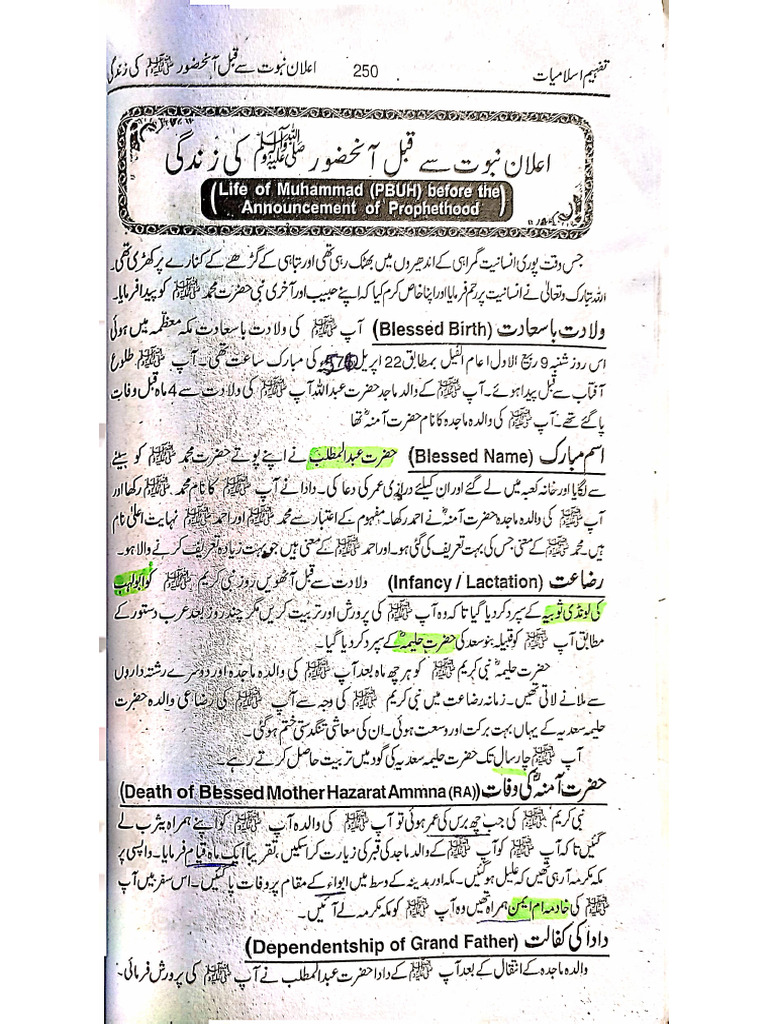 تفہیم اسلامیات 250 اعلان نبوت سے قبل آنحضور ﷺ کی زندگی
اعلان نبوت سے قبل آنحضور ﷺ کی زندگی
(Life of Muhammad (PBUH) before the
Announcement of Prophethood)
جس وقت پوری انسانیت گمراہی کے اندھیروں میں بھٹک رہی تھی اور تباہی کے گڑھے کے کنارے پر کھڑی تھی۔
اللہ تبارک وتعالیٰ نے انسانیت پر رحم فرمایا اور اپنا خاص کرم کیا کہ اپنے حبیب اور آخری نبی حضرت محمد ﷺ کو پیدا فرمایا۔
ولادت باسعادت (Blessed Birth) آپ ﷺ کی ولادت باسعادت مکہ معظمہ میں ہوئی
اس روز شنبہ 9 ربیع الاول اعام الفیل بمطابق 22 اپریل کی مبارک ساعت تھی۔ آپ ﷺ طلوع
آفتاب سے قبل پیدا ہوئے۔ آپ ﷺ کے والد ماجد حضرت عبداللہ آپ ﷺ کی ولادت سے 4 ماہ قبل وفات
پا گئے تھے۔ آپ ﷺ کی والدہ ماجدہ کا نام حضرت آمنہؓ تھا
اسم مبارک (Blessed Name) حضرت عبدالمطلب نے اپنے پوتے حضرت محمد ﷺ کو سینے
سے لگایا اور خانہ کعبہ میں لے گئے اور ان کیلئے درازی عمر کی دعا کی۔ دادا نے آپ ﷺ کا نام محمد ﷺ رکھا اور
آپ ﷺ کی والدہ ماجدہ حضرت آمنہؓ نے احمد رکھا۔ مفہوم کے اعتبار سے محمد ﷺ اور احمد ﷺ نہایت اعلیٰ نام
ہیں۔ محمد ﷺ کے معنی جس کی بہت تعریف کی گئی ہو۔ اور احمد ﷺ کے معنی ہیں جو بہت زیادہ تعریف کرنے والا ہو۔
رضاعت (Infancy / Lactation) ولادت سے قبل آٹھویں روز نبی کریم ﷺ کو ابولہب
کی لونڈی ثوبیہ کے سپرد کر دیا گیا تاکہ وہ آپ ﷺ کی پرورش اور تربیت کریں مگر چند روز بعد عرب دستور کے
مطابق آپ ﷺ کو قبیلہ بنو سعد کی حضرت حلیمہؓ کے سپرد کر دیا گیا۔
حضرت حلیمہؓ نبی کریم ﷺ کو ہر چھ ماہ بعد آپ ﷺ کی والدہ ماجدہ اور دوسرے رشتہ داروں
سے ملانے لاتی تھیں۔ زمانہ رضاعت میں نبی کریم ﷺ کی وجہ سے آپ ﷺ کی رضاعی والدہ حضرت
حلیمہ سعدیہ کے یہاں بہت برکت اور وسعت ہوئی۔ ان کی معاشی تنگدستی ختم ہو گئی۔
آپ ﷺ چار سال تک حضرت حلیمہ سعدیہ کی گود میں تربیت حاصل کرتے رہے۔
حضرت آمنہؓ کی وفات (Death of Blessed Mother Hazarat Ammna (RA))
نبی کریم ﷺ کی جب چھ برس کی عمر ہوئی تو آپ ﷺ کی والدہ آپ ﷺ کو اپنے ہمراہ یثرب لے
گئیں تاکہ آپ ﷺ کو آپ ﷺ کے والد ماجد کی قبر کی زیارت کرا سکیں، تقریباً ایک ماہ قیام فرمایا۔ واپسی پر
مکہ مکرمہ آ رہی تھیں کہ علیل ہو گئیں۔ مکہ اور مدینہ کے وسط میں ابواء کے مقام پر وفات پا گئیں۔ اس سفر میں آپ
ﷺ کی خادمہ ام ایمن ہمراہ تھیں وہ آپ ﷺ کو مکہ مکرمہ لے آئیں۔
دادا کی کفالت (Dependentship of Grand Father)
والدہ ماجدہ کے انتقال کے بعد آپ ﷺ کے دادا حضرت عبدالمطلب نے آپ ﷺ کی پرورش فرمائی۔